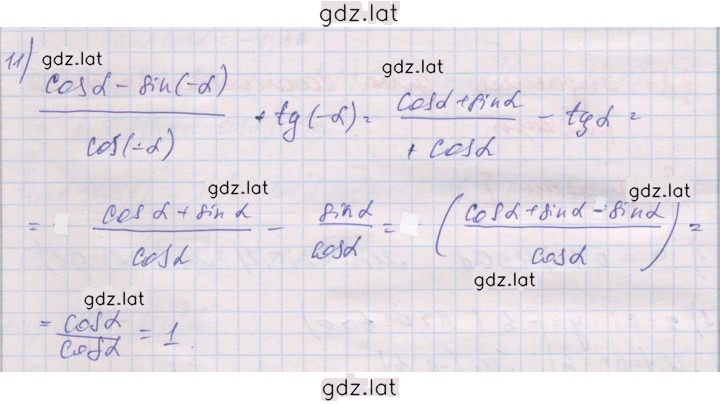 gdz.lat
11) gdz.lat gdz.lat
(cosα - sin(-α)) / cos(-α) + tg(-α) = (cosα + sinα) / + cosα - tgα =
gdz.lat gdz.lat
= (cosα + sinα) / cosα - sinα / cosα = ((cosα + sinα - sinα) / cosα) =
gdz.lat gdz.lat
= cosα / cosα = 1
gdz.lat